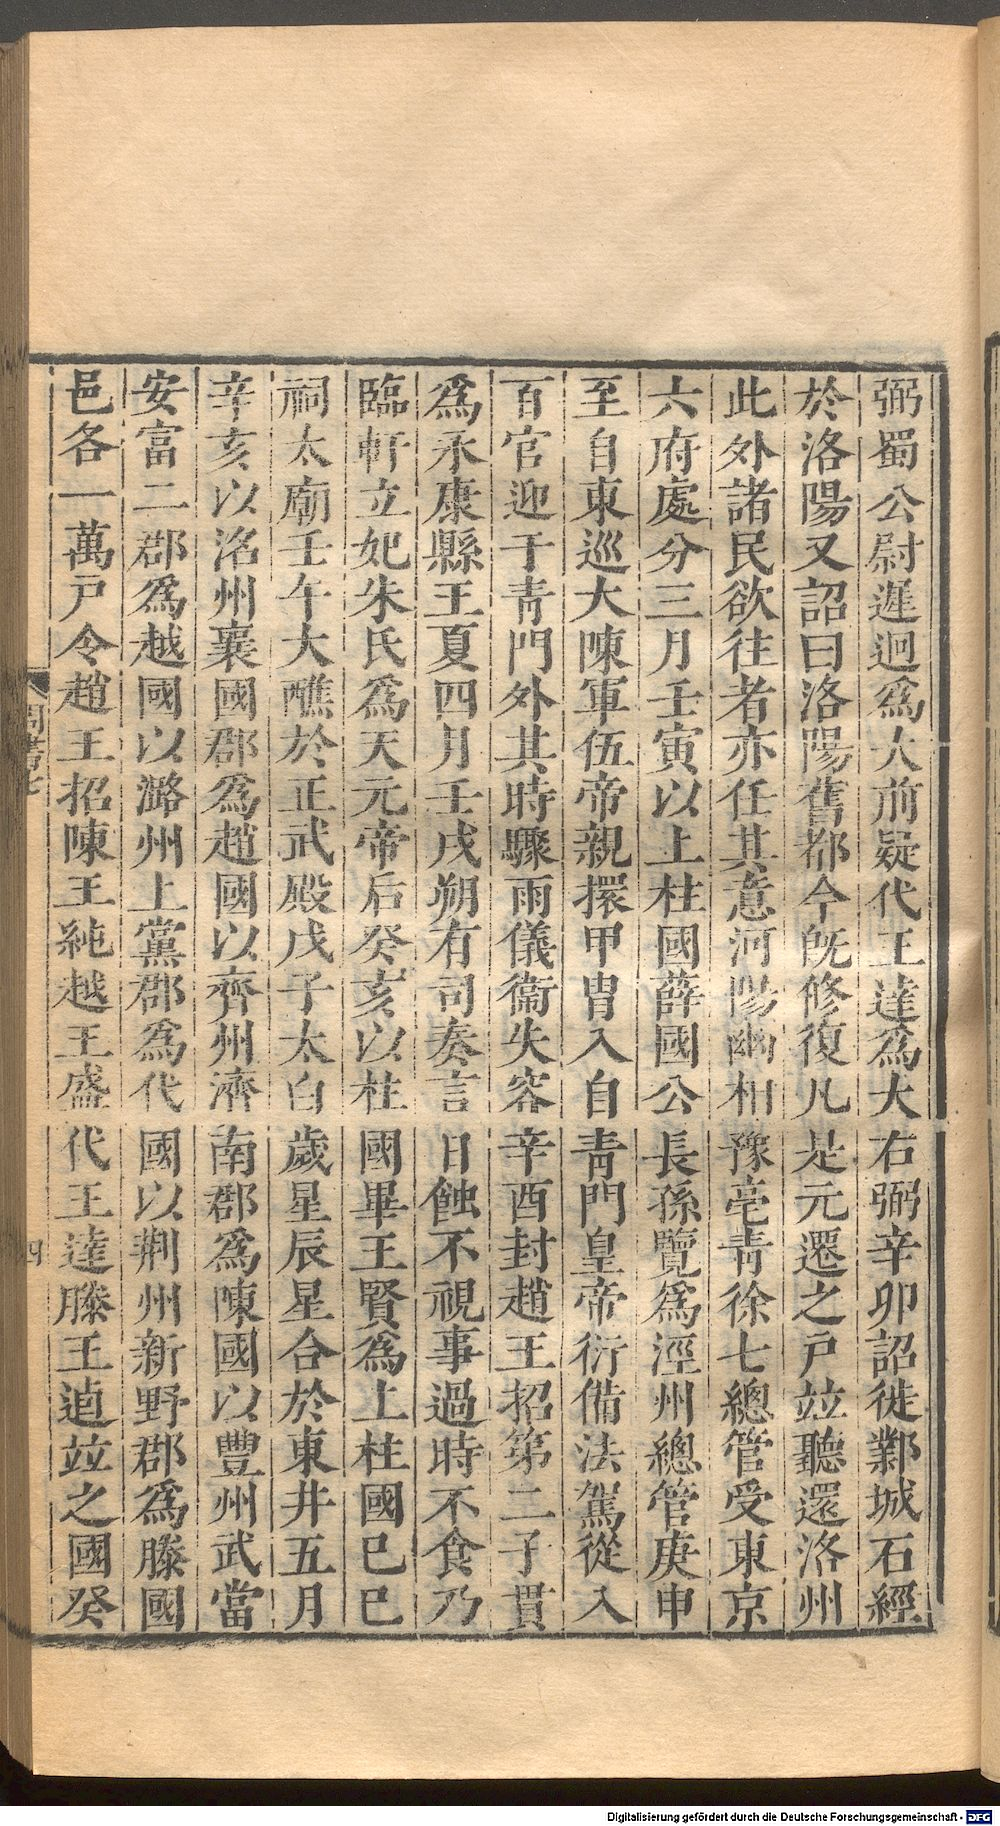 弼蜀公尉遲迥爲大前疑代王達爲大右弼辛卯詔徙鄴城石經
於洛陽又詔曰洛陽舊都今旣修復凡是元遷之戸竝聽還洛州
此外諸民欲往者亦任其意河陽幽相豫亳靑徐七總管受東京
六府處分三月壬寅以上柱國薛國公長孫覽爲涇州總管庚申
至自東巡大陳軍伍帝親擐甲胄入自靑門皇帝衍備法駕從入
百官迎于靑門外其時驟雨儀衞失容辛酉封趙王招第二子貫
爲永康縣王夏四月壬戌朔有司奏言日蝕不視事過時不食乃
臨軒立妃朱氏爲天元帝后癸亥以柱國畢王賢爲上柱國己巳
祠太廟壬午大醮於正武殿戊子太白歲星辰星合於東井五月
辛亥以洺州襄國郡爲趙國以齊州濟南郡爲陳國以豐州武當
安富二郡爲越國以潞州上黨郡爲代國以荆州新野郡爲滕國
邑各一萬戸令趙王招陳王純越王盛代王達滕王逌竝之國癸
周書七
四
Digitalisierung gefördert durch die Deutsche Forschungsgemeinschaft - DFG